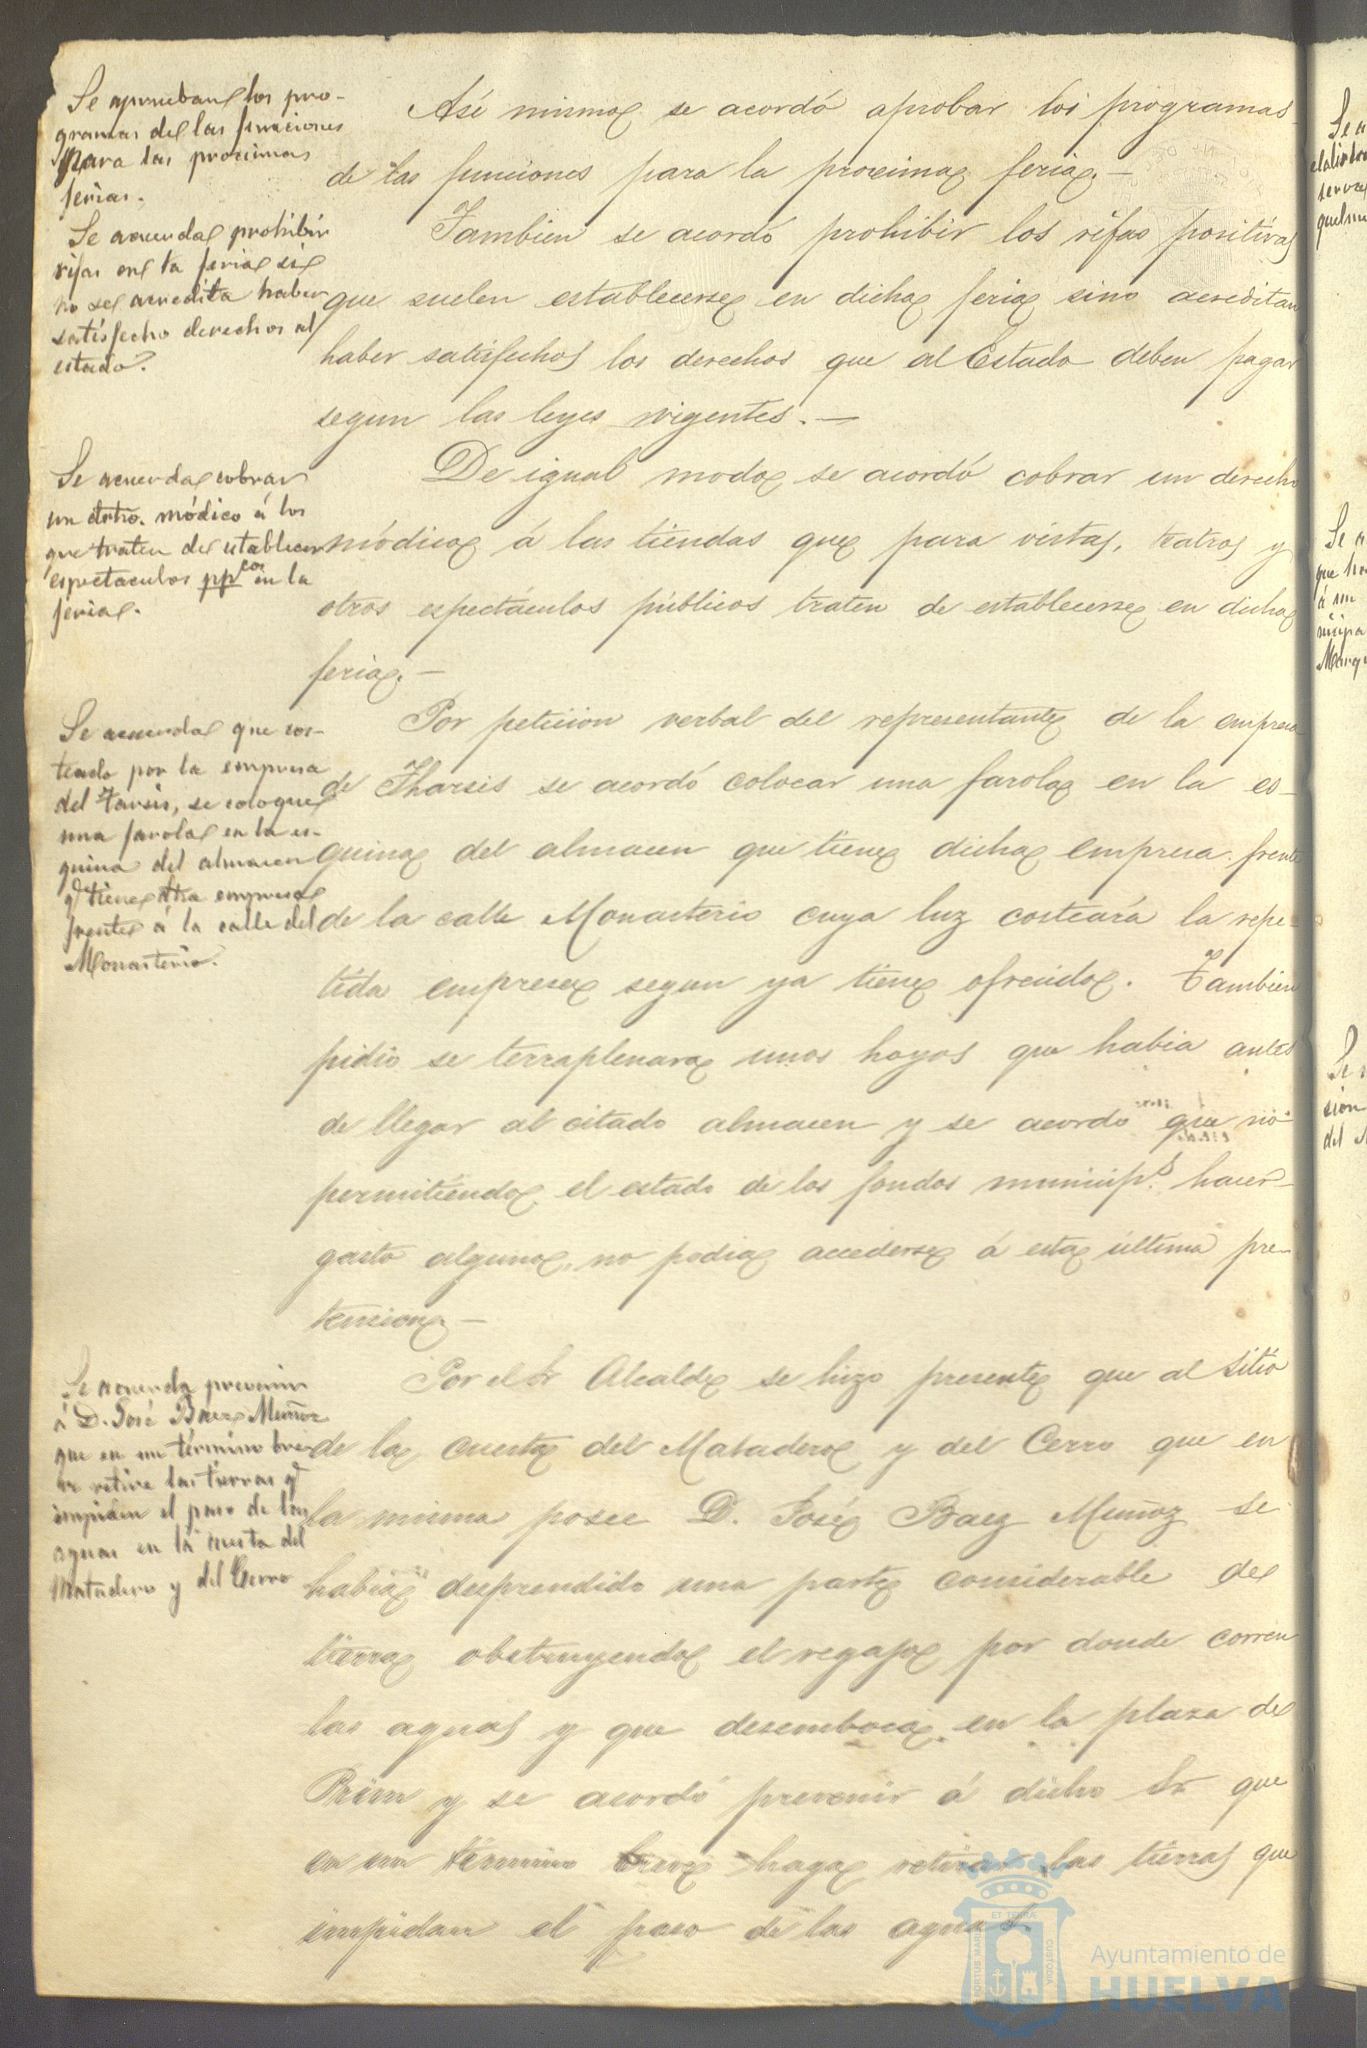 Se aprueban los pro-
gramas de las funciones
para las proximas
ferias.
Asi mismo se acordó aprobar los programas
de las funciones para la proxima feria.—
Se acuerda prohibir
rifas en la feria si
no se acredita haber
satisfecho derechos al
estado.
Tambien se acordó prohibir los rifas positivas
que suelen establecerse en dicha feria sino acreditan
haber satisfechos los derechos que al Estado deben pagar
segun las leyes vigentes.—
Se acuerda cobrar
un dro. módico á los
que traten de establecer
espectaculos ppcos en la
feria.
De igual modo se acordó cobrar un derecho
módico á las tiendas que para vistas, teatros y
otros espectáculos públicos traten de establecerse en dicha
feria.—
Se acuerda que cos-
teado por la empresa
del Tarsis, se coloque
una farola en la es-
quina del almacen
q. tiene dha empresa
frente á la calle del
Monasterio.
Por peticion verbal del representante de la empresa
de Tharsis se acordó colocar una farola en la es-
quina del almacen que tiene dicha empresa frente
de la calle Monasterio cuya luz costeará la repe-
tida empresa segun ya tiene ofrecido. Tambien
pidio se terraplenara unos hoyos que habia antes
de llegar al citado almacen y se acordó que no
permitiendo el estado de los fondos municips. hacer
gasto alguno, no podia accederse á esta última pre-
tension.—
Se acuerda prevenir
á D. José Baez Muñoz
que en un término bre-
ve retire las tierras q.
impiden el paso de las
aguas en la cuesta del
Matadero y del Cerro
Por el Sr Alcalde se hizo presente que al sitio
de la cuesta del Matadero y del Cerro que en
la misma posee D. José Baez Muñoz se
habia desprendido una parte considerable de
tierra obstruyendo el regajo por donde corren
las aguas y que desemboca en la plaza de
Prim y se acordó prevenir á dicho Sr que
en un término breve haga retirar las tierras que
impidan el paso de las aguas.
Ayuntamiento de
HUELVA